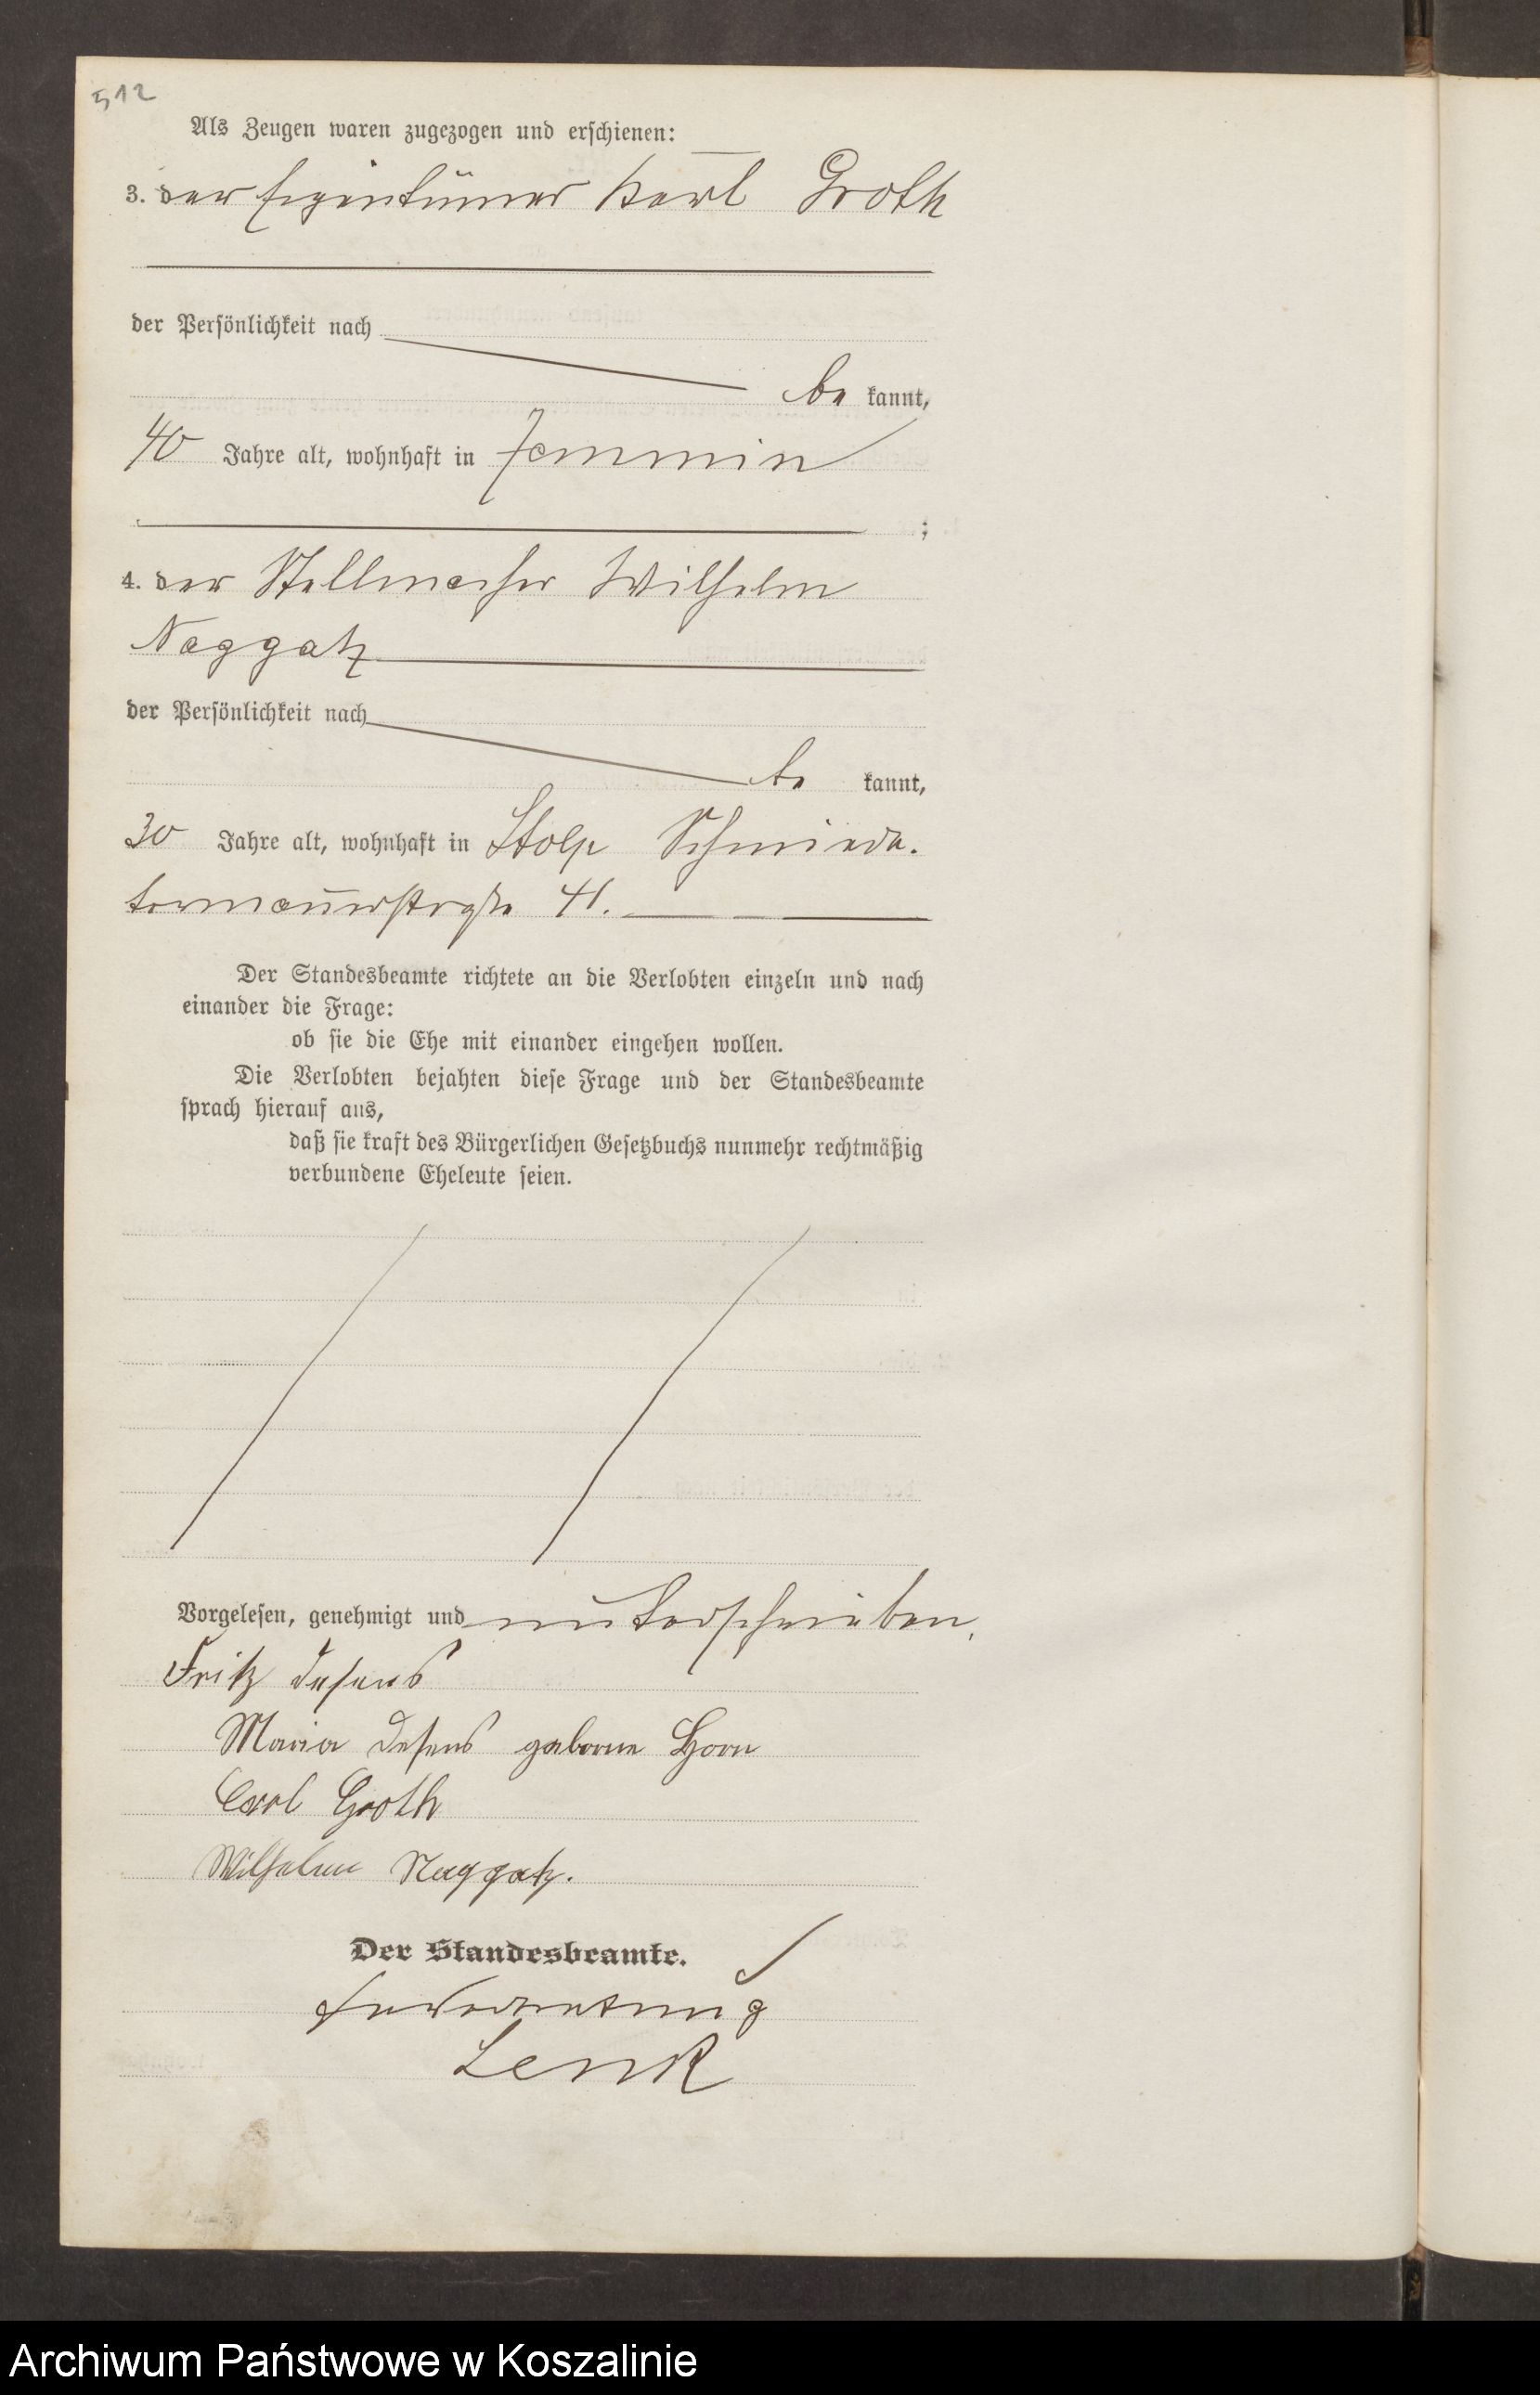 512
Als Zeugen waren zugezogen und erschienen:
3. der Eigentümer Karl Groth
der Persönlichkeit nach
be kannt,
40 Jahre alt, wohnhaft in Jemmin
;
4. der Stellmacher Wilhelm
Naggatz
der Persönlichkeit nach
be kannt,
30 Jahre alt, wohnhaft in Stolp Schmiede-
tormauerstraße 41.
Der Standesbeamte richtete an die Verlobten einzeln und nach
einander die Frage:
ob sie die Ehe mit einander eingehen wollen.
Die Verlobten bejahten diese Frage und der Standesbeamte
sprach hierauf aus,
daß sie kraft des Bürgerlichen Gesetzbuchs nunmehr rechtmäßig
verbundene Eheleute seien.
Vorgelesen, genehmigt und unterschrieben.
Fritz Desens
Maria Desens geborne Horn
Carl Groth
Wilhelm Naggatz.
Der Standesbeamte.
In Vertretung
Lenk
Archiwum Państwowe w Koszalinie